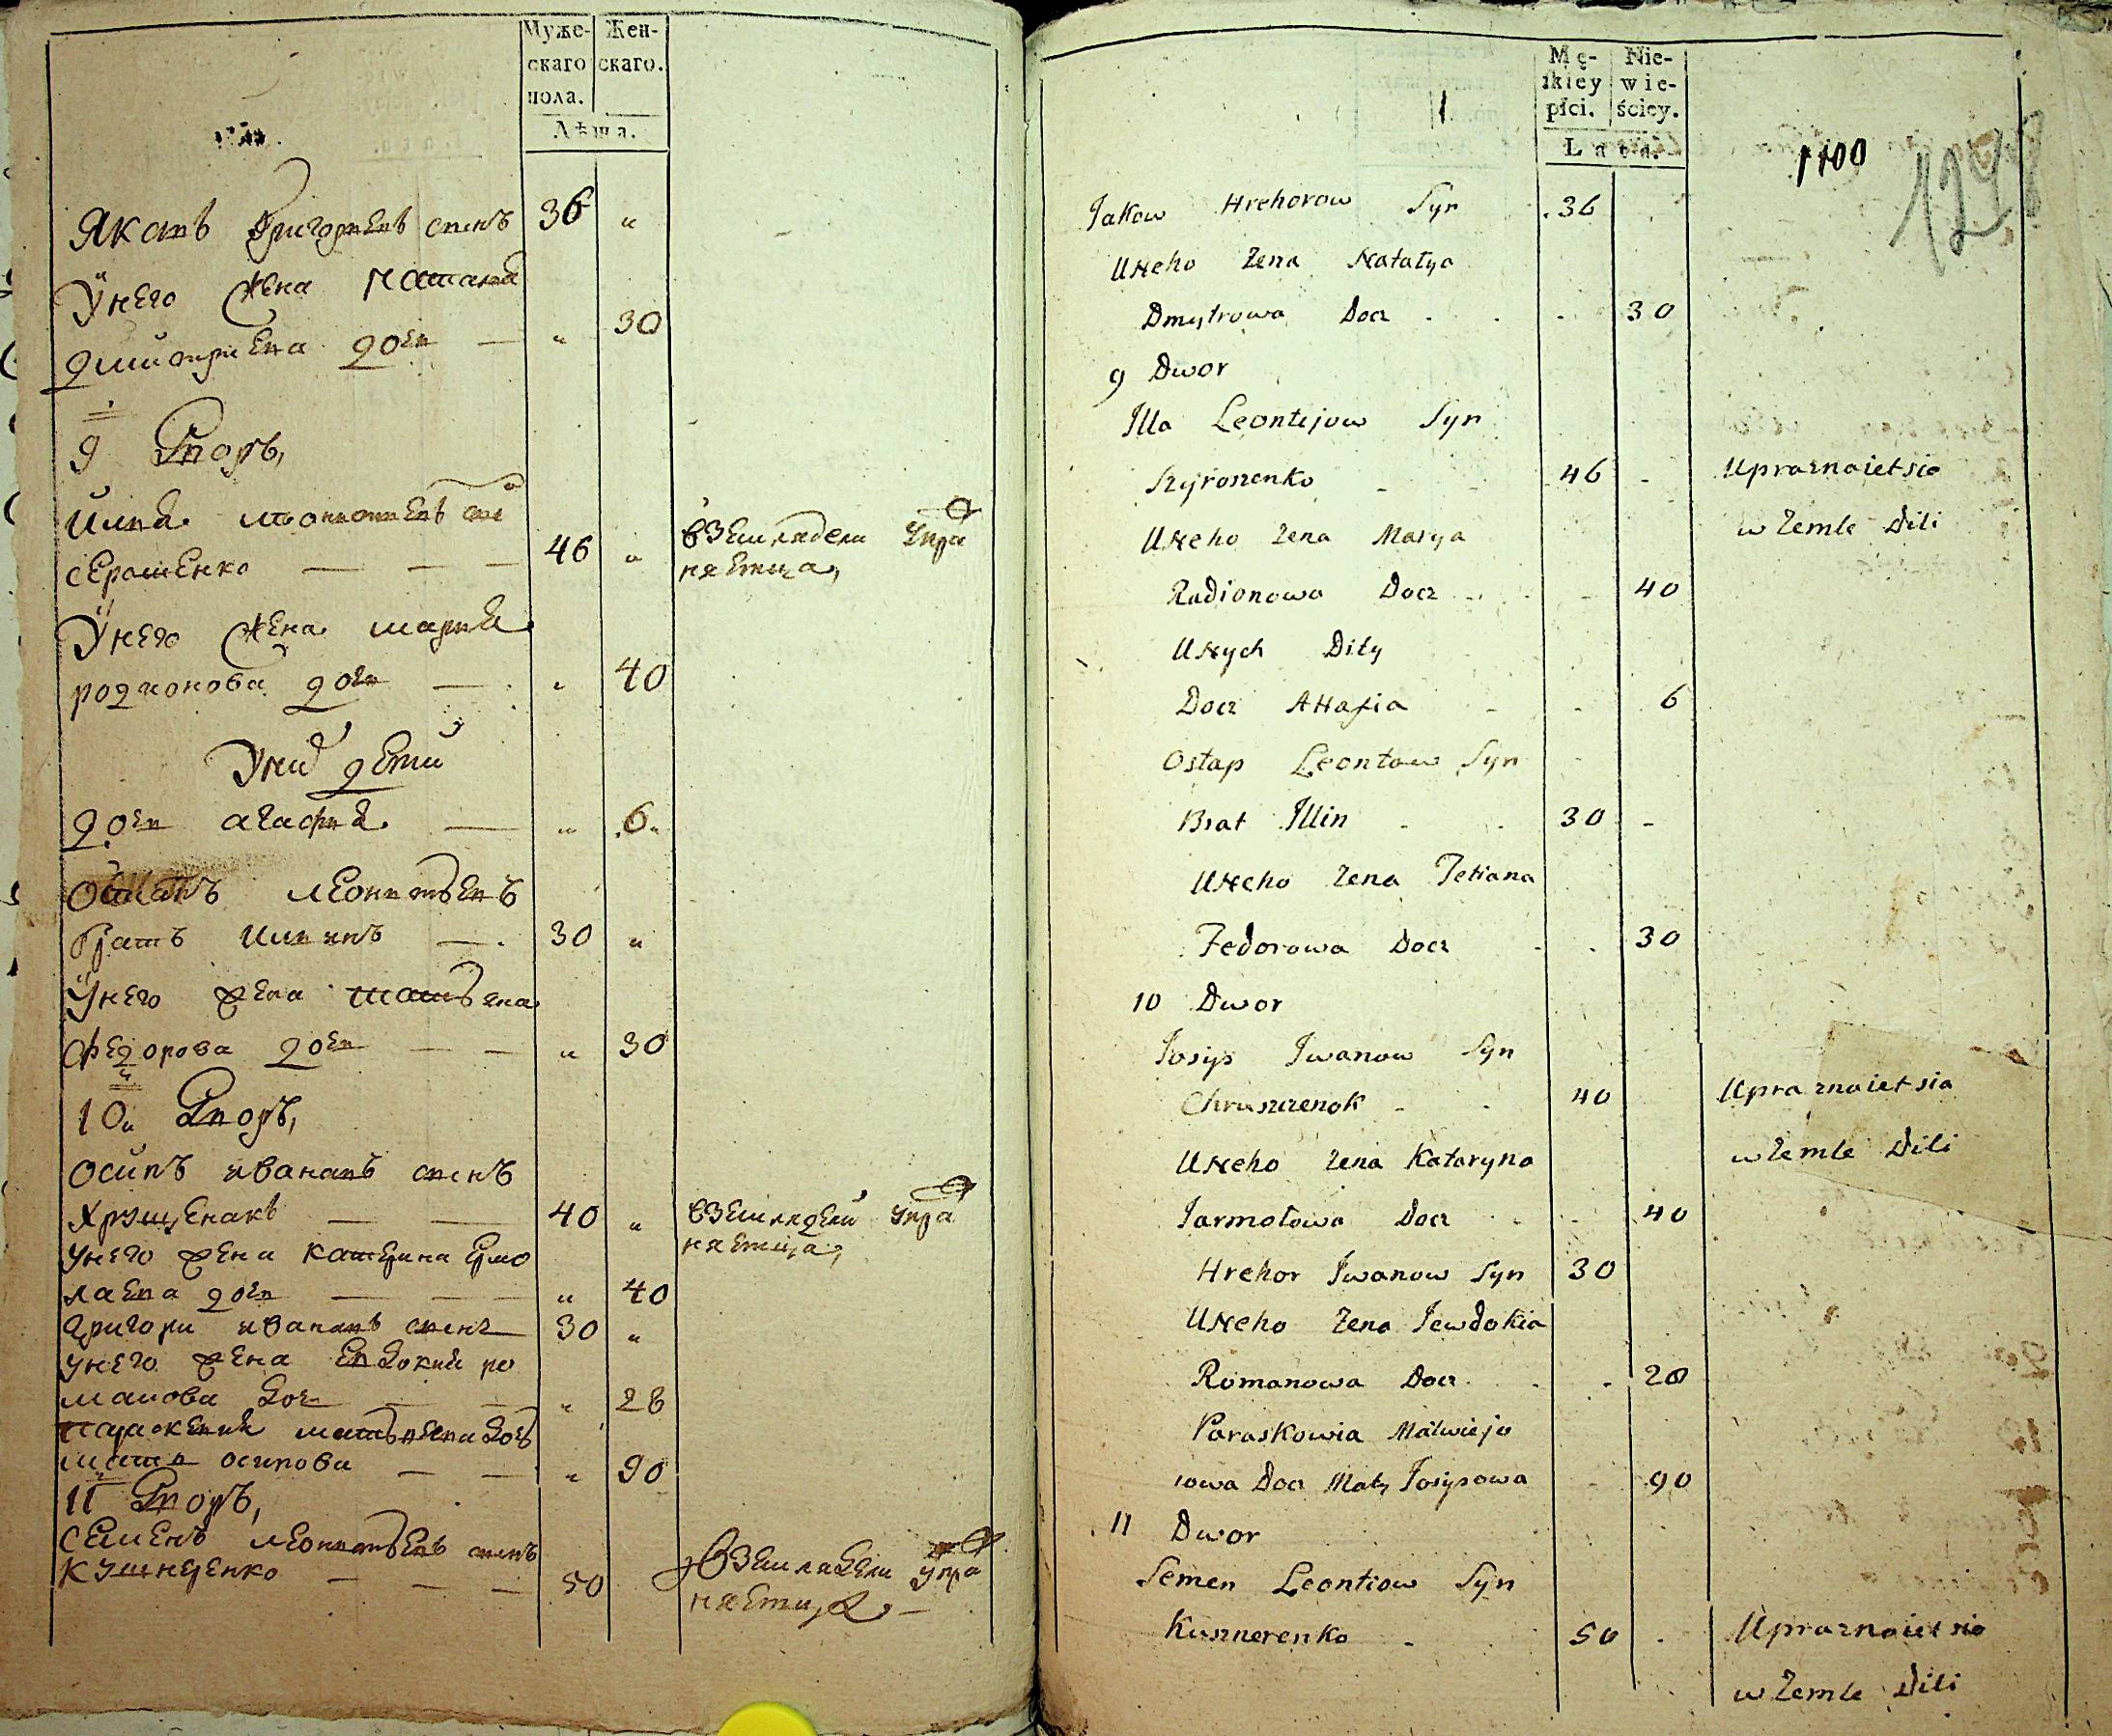 Муже-
скаго
пола.
Жен-
скаго.
Лѣта.
Яковъ Григориевъ сынъ 36 "
Унего жена Наталия
Дмитриева дочь — " 30
9 Дворъ,
Илия Леонтиевъ сынъ
серошенко — — — 46 " вземледели упра
няетца,
Унего жена мария
родионова дочь — " 40
Уних дети
дочь агафия — " 6
Остапъ леонтьевъ
братъ илиинъ — 30 "
Унего жена татьяна
федорова дочь — — " 30
10 Дворъ,
осипъ ивановъ сынъ
Хрущенакъ — — 40 " вземледели упра
няетца,
унего жена катерина ермо
лаева дочь — — — " 40
григори ивановъ сынъ 30 "
унего жена евдокия ро
манова дочь — — " 28
параскевия матвеева дочь
мать осипова — — " 90
11 Дворъ,
семенъ леонтьевъ сынъ
кушнеренко — — — 50 вземледели упра
няетца —
Mę-
zkiey
płci.
Nie-
wie-
ściey.
Lata.
1100
Jakow Hrehorow Syn 36
UNeho Zena Natalya
Dmytrowa Docz 30
9 Dwor
Illa Leontijow Syn
Szyroszenko 46 Upraznaietsia
UNeho Zena Marya w Zemle Dili
Radionowa Docz 40
UNych Dity
Docz AHafia 6
Ostap Leontow Syn
Brat Illin 30
UNeho Zena Tetiana
Fedorowa Docz 30
10 Dwor
Josyp Jwanow Syn
Chruszczenok 40 Upraznaietsia
UNeho Zena Kataryna w Zemle Dili
Jarmołowa Docz 40
Hrehor Jwanow Syn 30
UNeho Zena Jewdokia
Romanowa Docz 28
Paraskowia Matwiejo
wowa Docz Maty Josypowa 90
11 Dwor
Semen Leontiow Syn
Kusznerenko 50 Upraznaietsia
w Zemle Dili